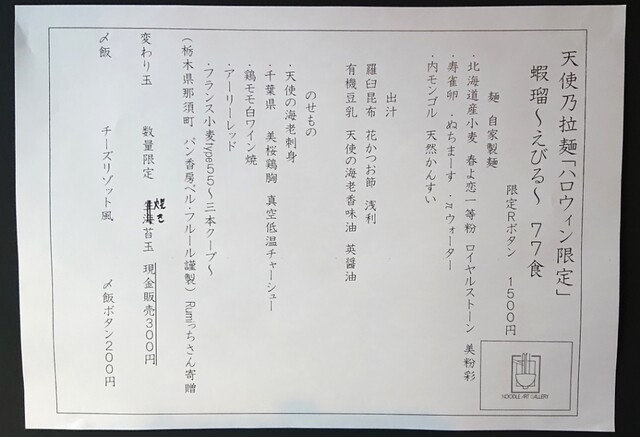 天使乃拉麺「ハロウィン限定」
蝦瑠～えびる～ 77食
限定Rボタン 1500円
麺 自家製麺
・北海道産小麦 春よ恋一等粉 ロイヤルストーン 美粉彩
・寿雀卵 ・ぬちまーす ・πウォーター
・内モンゴル 天然かんすい
出汁
羅臼昆布 花かつお節 浅利
有機豆乳 天使の海老香味油 英醤油
のせもの
・天使の海老刺身
・千葉県 美桜鶏胸 真空低温チャーシュー
・鶏モモ白ワイン焼
・アーリーレッド
・フランス小麦type55～三本クープ～
(栃木県那須町 パン香房ベル・フルール謹製) Rumiっちさん寄贈
変わり玉 数量限定 焼き海苔玉 現金販売300円
〆飯 チーズリゾット風 〆飯ボタン200円
NOODLE ART GALLERY